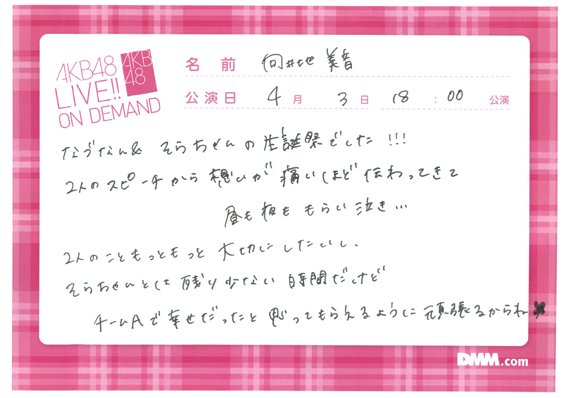 AKB48
LIVE!!
ON DEMAND
AKB
48
名前 向井地 美音
公演日 4月 3日 18:00 公演
なぅなん& そらちゃんの生誕祭でした!!!
2人のスピーチから想いが痛いほど伝わってきて
昼も夜ももらい泣き…
2人のこともっともっと大切にしたいし、
そらちゃんとは残り少ない時間だけど
チームAで幸せだったと思ってもらえるように頑張るからね
DMM.com